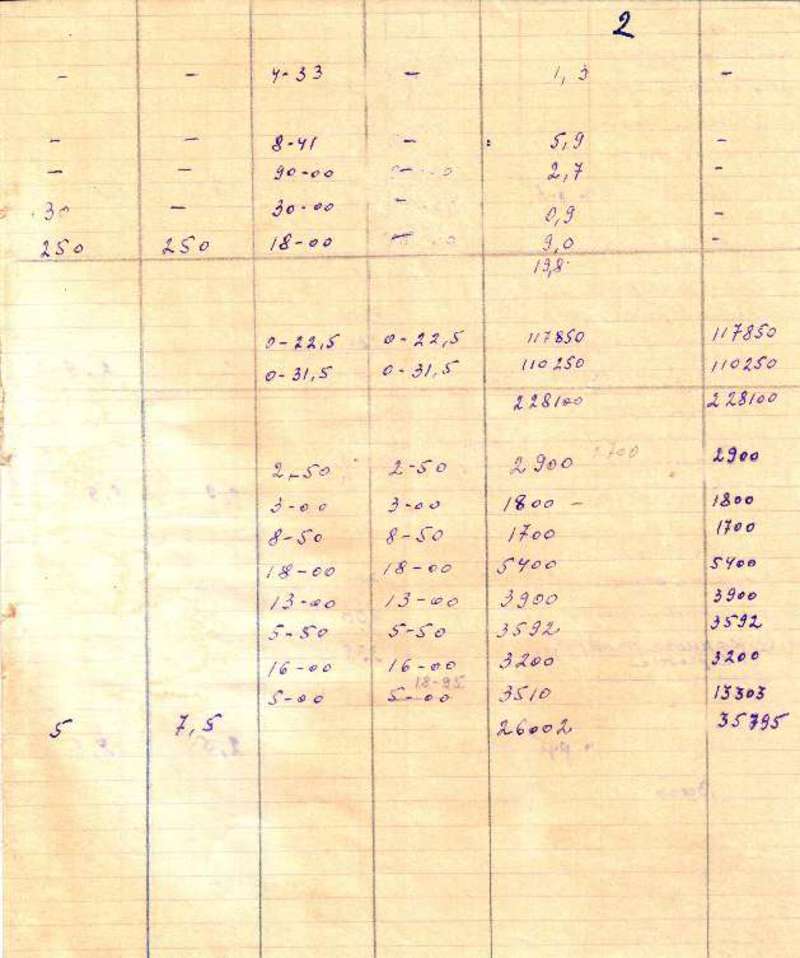 2
- - 4-33 - 1,3 -
- - 8-41 - 5,9 -
- - 90-00 - 2,7 -
30 - 30-00 - 0,9 -
250 250 18-00 - 9,0 -
19,8
0-22,5 0-22,5 117850 117850
0-31,5 0-31,5 110250 110250
228100 228100
2-50 2-50 2900 2700 2900
3-00 3-00 1800 - 1800
8-50 8-50 1700 1700
18-00 18-00 5400 5400
13-00 13-00 3900 3900
5-50 5-50 3592 3592
16-00 16-00 3200 3200
18-95
5-00 5-00 3510 13303
5 7,5 26002 35795